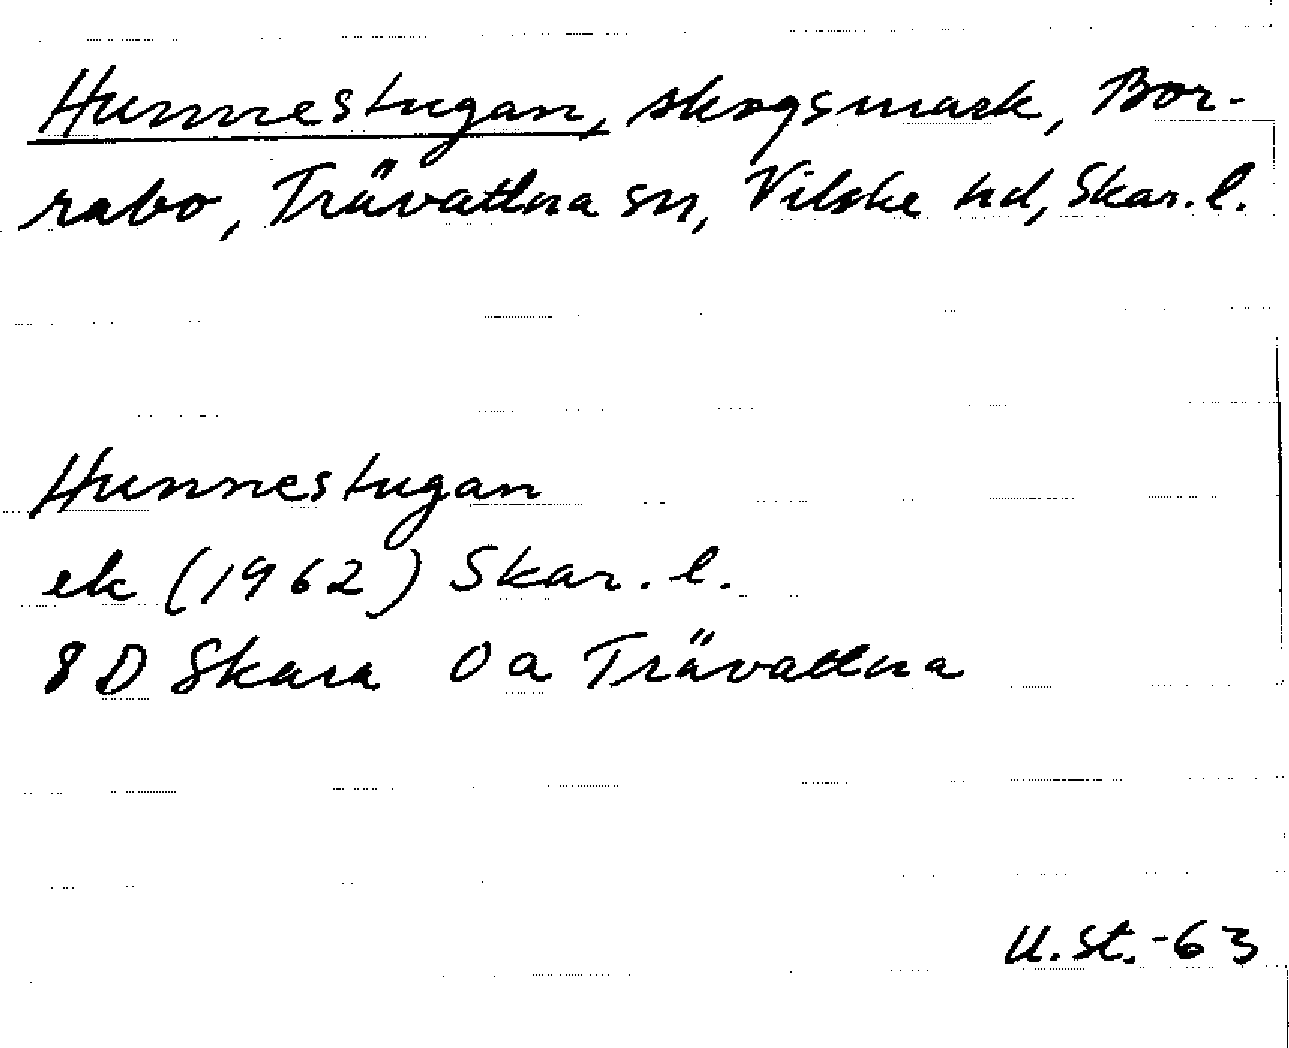 Hunnestugan, skogsmark, Bor-
rabo, Trävattna sn, Vilske hd, Skar. l.
Hunnestugan
ek (1962) Skar. l.
8 D Skara 0 a Trävattna
U. St. -63